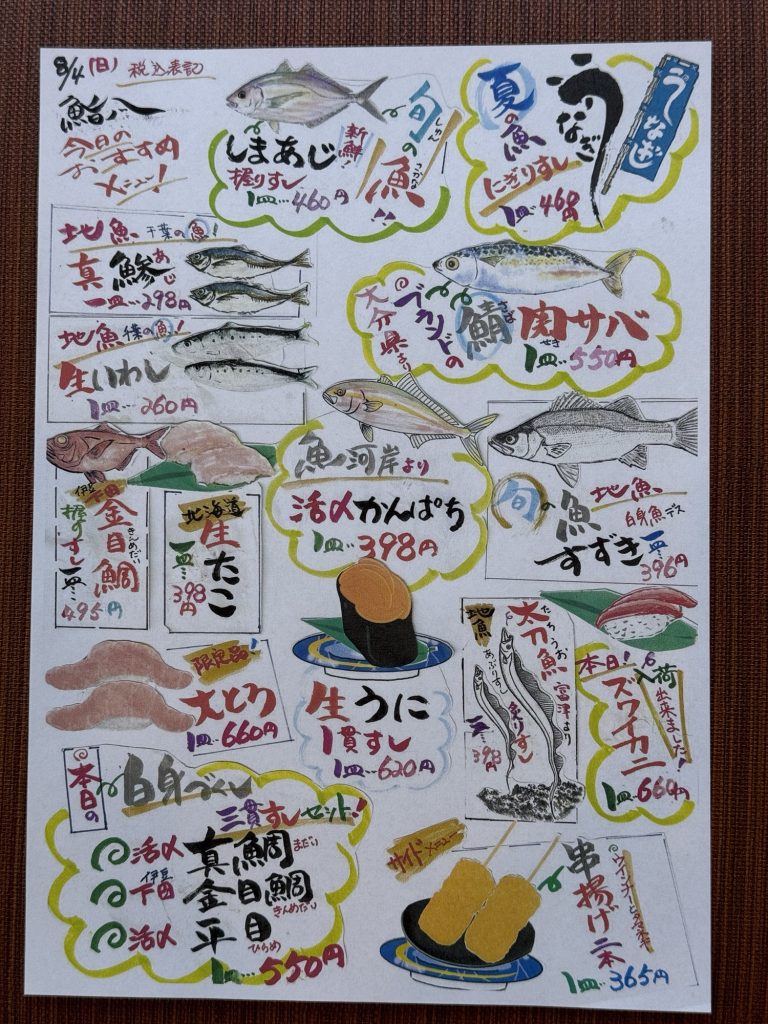 8/4(日) 税込表記
鮨八
今日の
おすすめ
メニュー!
旬の魚!!
しゅん
さかな
新鮮!
しまあじ
握りすし
1皿…460円
夏の魚
うなぎ
にぎりすし
1皿…460円
うなぎ
地魚 千葉の魚!
真鯵
あじ
一皿…298円
地魚 千葉の魚!
生いわし
1皿…260円
大分県より
ブランドの鯖
さば
関サバ
せき
1皿…550円
魚河岸より
活〆かんぱち
1皿…398円
旬の魚
地魚
白身魚デス
すずき
一皿…396円
伊豆下田
金目鯛
きんめだい
握りすし
一皿…495円
北海道
生たこ
一皿…398円
限定品!
大とろ
1皿…660円
生うに
1貫すし
1皿…620円
地魚
太刀魚
たちうお
富津より
炙りすし
あぶりすし
一皿…398円
本日!
入荷出来ました!
ズワイカニ
1皿…660円
本日の
白身づくし
三貫すしセット!
活〆 真鯛
まだい
伊豆
下田 金目鯛
きんめだい
活〆 平目
ひらめ
1皿…550円
サイドメニュー
串揚げ二本
1皿…365円